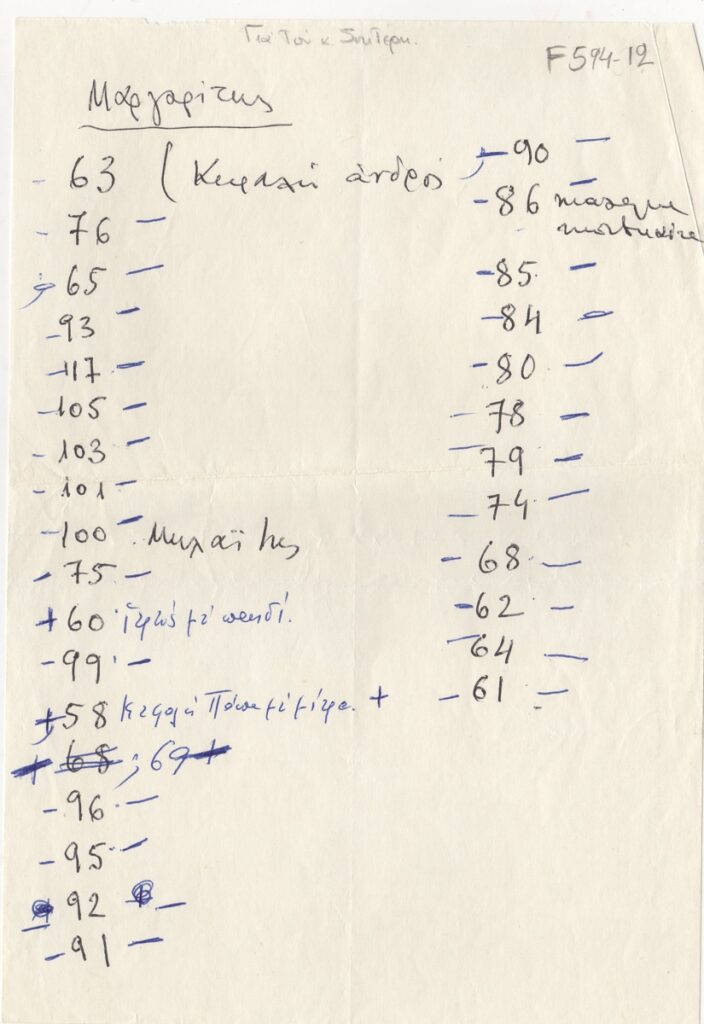 Για τον κ.
F594-12
Μαργαρίτης
- 63 ( Κεφαλή ἀνδρός
- 76 -
- 65 -
- 93 -
- 117 -
- 105 -
- 103 -
- 101 -
- 100 -
- 75 -
+ 60 · με παιδί.
- 99 -
+ 58 Κεφαλή Πάπα με μίτρα. +
+ 68 ; 69 +
- 96 -
- 95 -
92 -
- 91 -
- 90 -
- 86 - masque
mortuaire
- 85 -
- 84 -
- 80 -
- 78 -
- 79 -
- 74 -
- 68 -
- 62 -
- 64 -
- 61 -